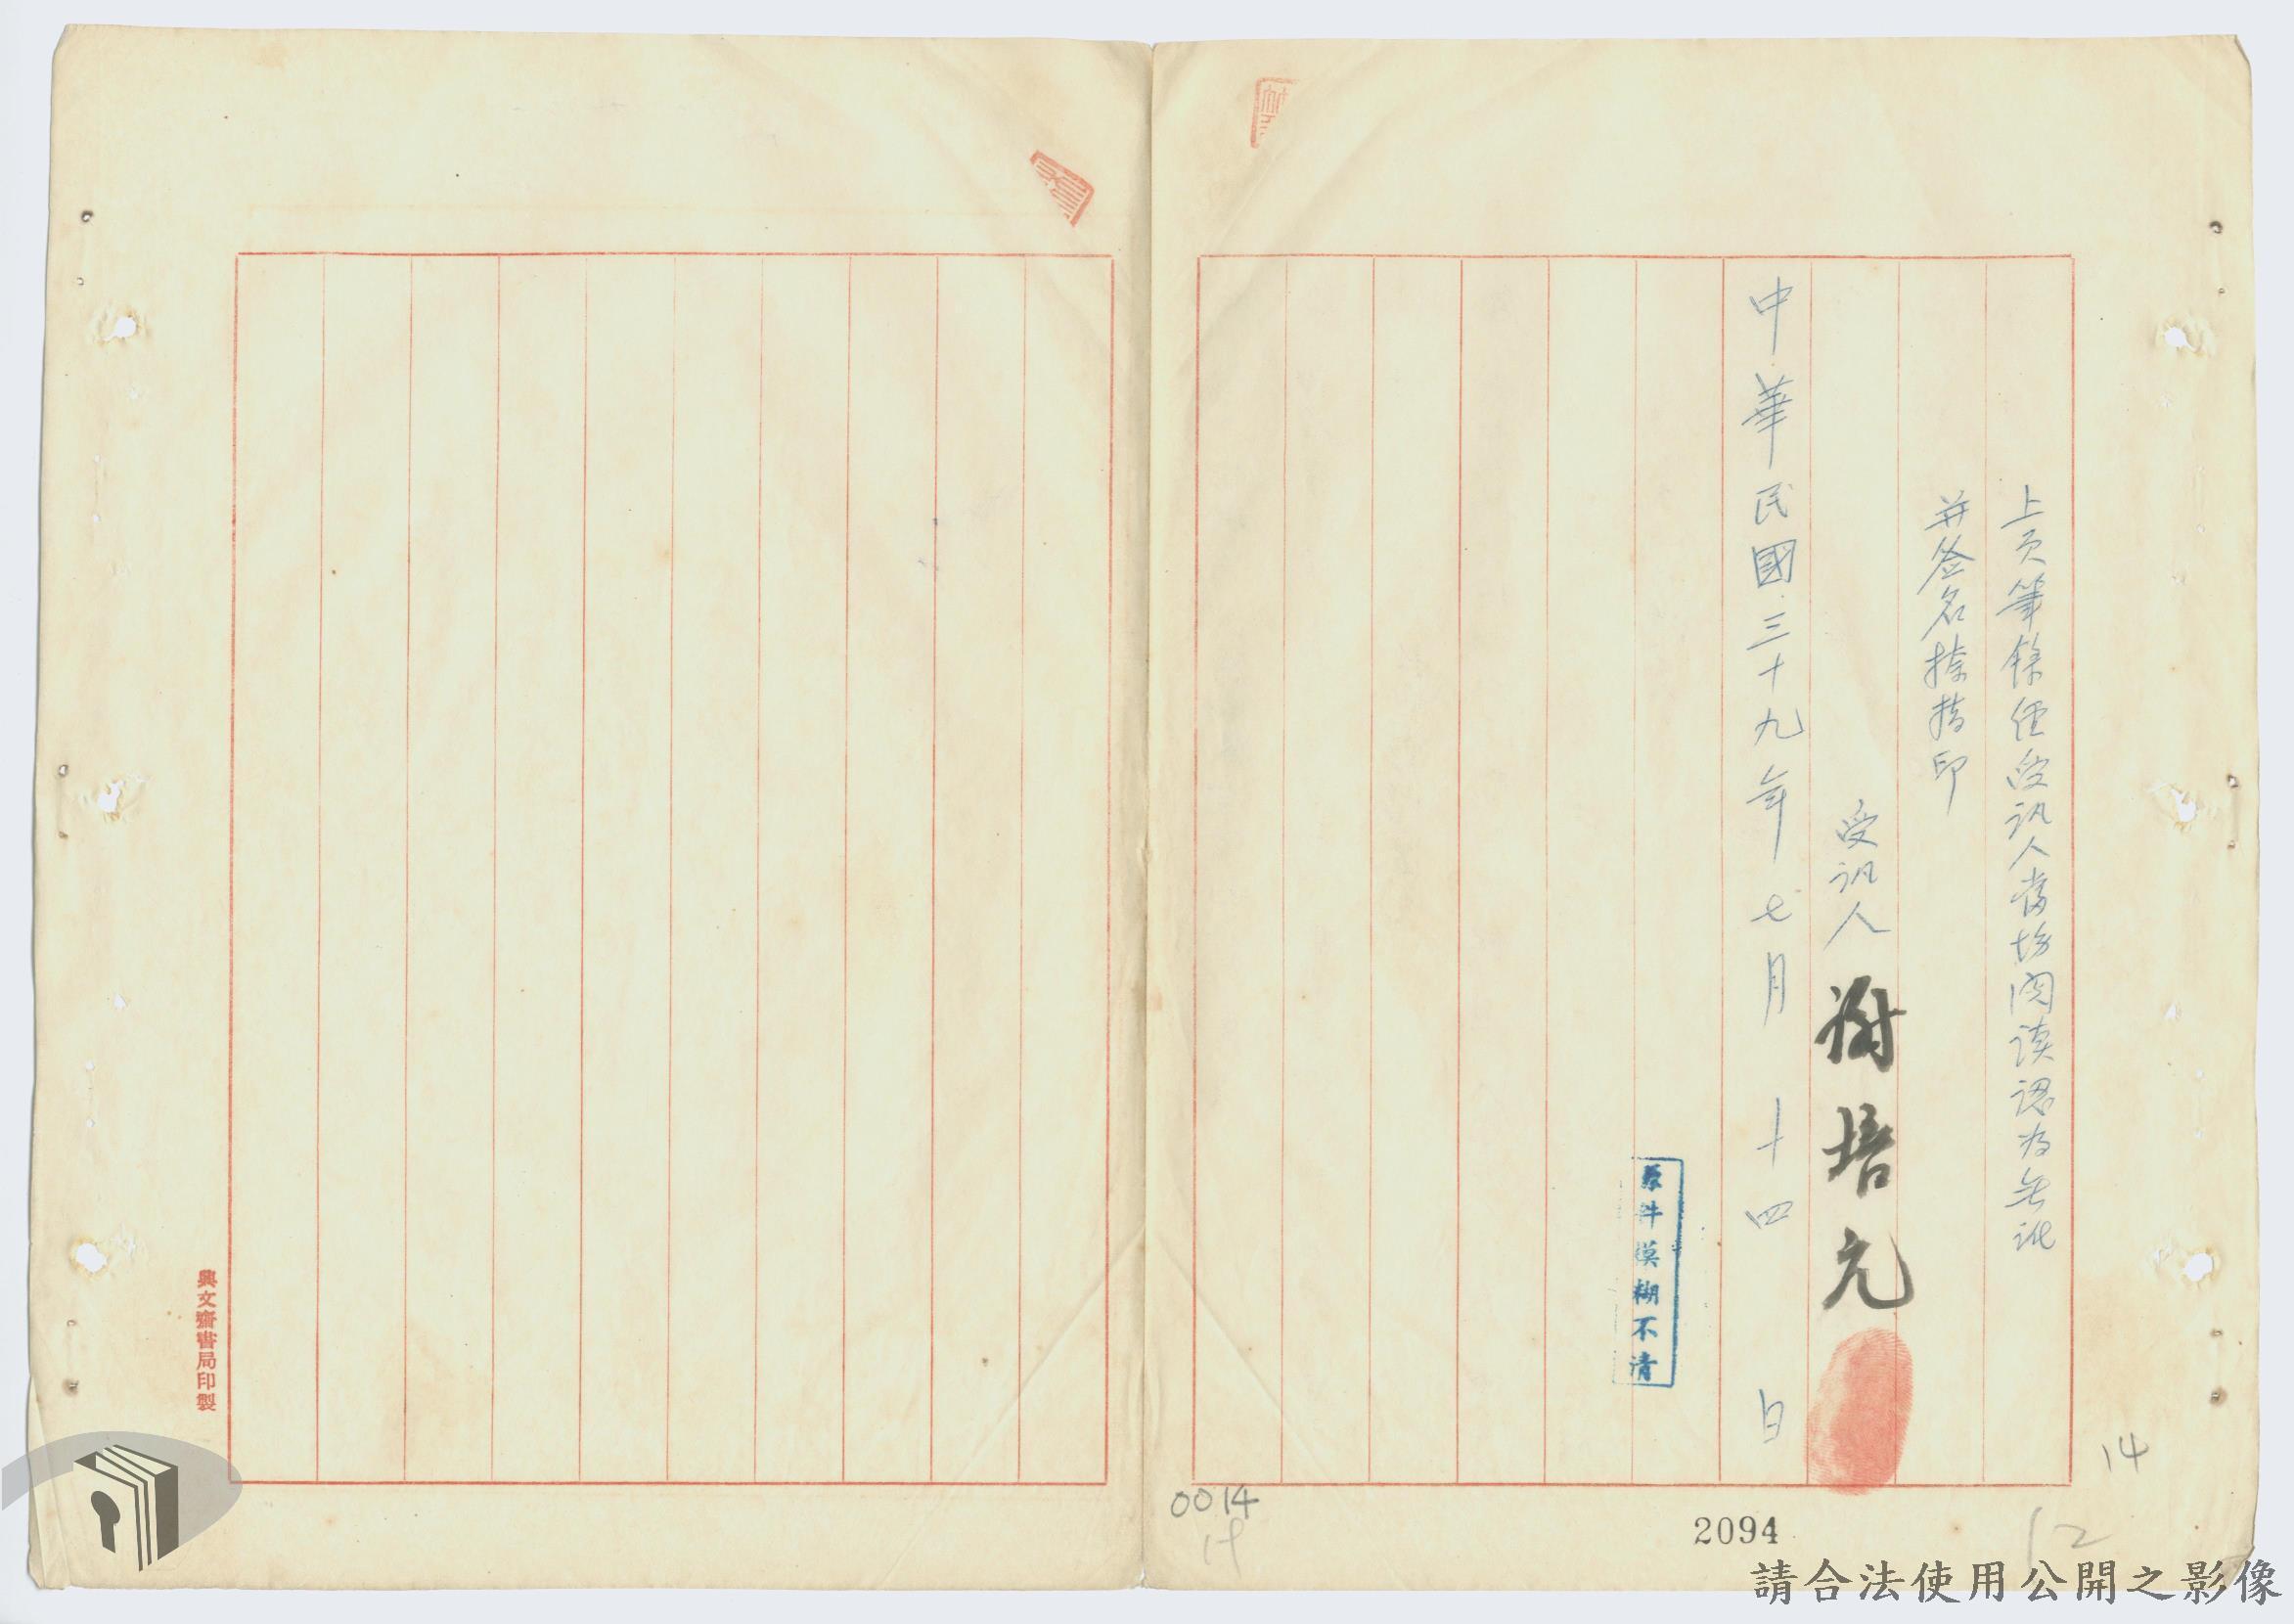 上頁筆錄經受訊人當場閱讀認為無訛
并簽名捺指印
受訊人 謝培元
中華民國三十九年七月十四日
原件模糊不清
14
12
2094
0014
14
興文齋書局印製
請合法使用公開之影像